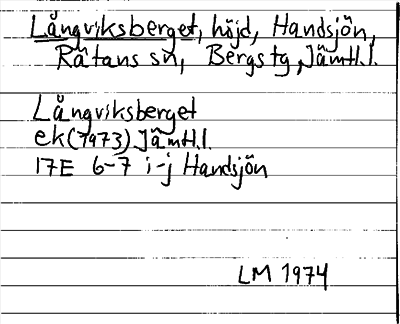 Långviksberget, höjd, Handsjön,
Rätans sn, Bergs tg, Jämtl.l.
Långviksberget
ek(1973) Jämtl.l.
17E 6-7 i-j Handsjön
LM 1974